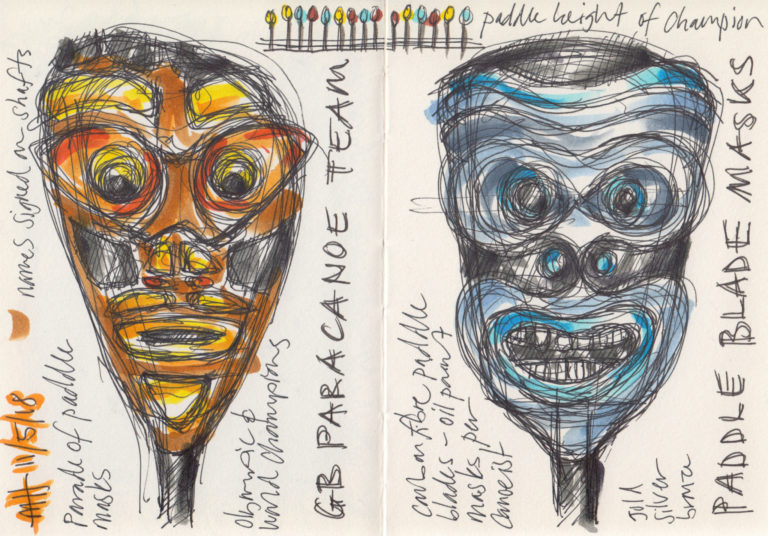 paddle height of champion
names signed on shafts
GB PARACANOE TEAM
PADDLE BLADE MASKS
11/5/18
Parade of paddle
masks
Olympic &
world champions
carbon fibre paddle
blades - oil paint
masks per
canoeist
gold
silver
bronze